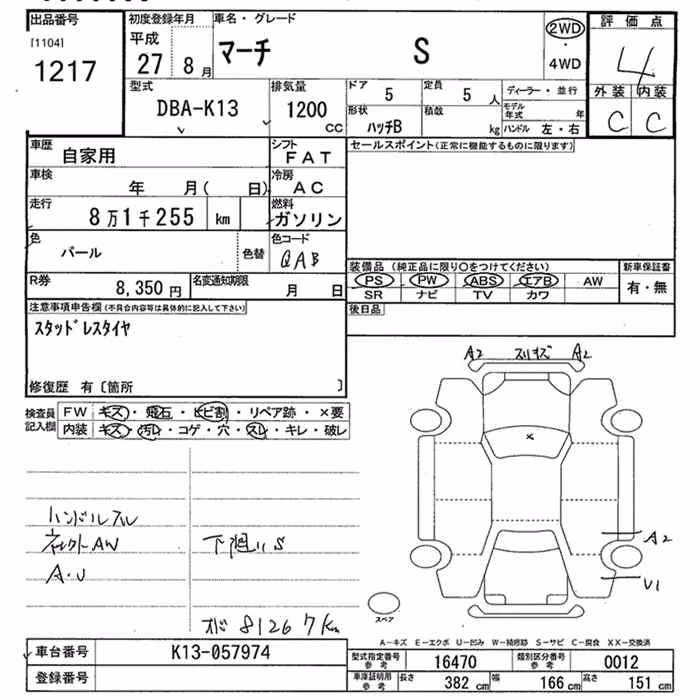 出品番号 初度登録年月 車名・グレード 評価点
[1104] 平成 マーチ S 2WD
1217 27 8月 4WD 4
型式 排気量 ドア 定員 外装 内装
DBA-K13 1200 CC 5 5 人 ディーラー・並行 C C
形状 積載 モデル年式
ハッチB kg ハンドル 左・右
車歴 自家用 シフト FAT セールスポイント(正常に機能するものに限ります)
車検 年 月( 日) 冷房 AC
走行 8万1千255 km 燃料 ガソリン
色 パール 色替 色コード QAB
装備品 (純正品に限り○をつけてください) 新車保証書
R券 8,350円 名変通知期限 月 日 PS PW ABS エアB AW 有・無
SR ナビ TV カワ
注意事項申告欄(不具合内容等は具体的に記入して下さい) 後日品
スタッドレスタイヤ
A2 スリキズ A2
修復歴 有〔箇所 〕
検査員記入欄 FW キズ・飛石・ヒビ割・リペア跡・×要
内装 キズ・汚レ・コゲ・穴・スレ・キレ・破レ
×
ハンドルスレ
AW 下廻りS A2
A・U U1
スペア
81267Km
A-キズ E-エクボ U-凹み W-補修跡 S-サビ C-腐食 XX-交換済
車台番号 K13-057974 型式指定番号 参考 16470 類別区分番号 参考 0012
登録番号 車庫証明用 参考 長さ 382 cm 幅 166 cm 高さ 151 cm